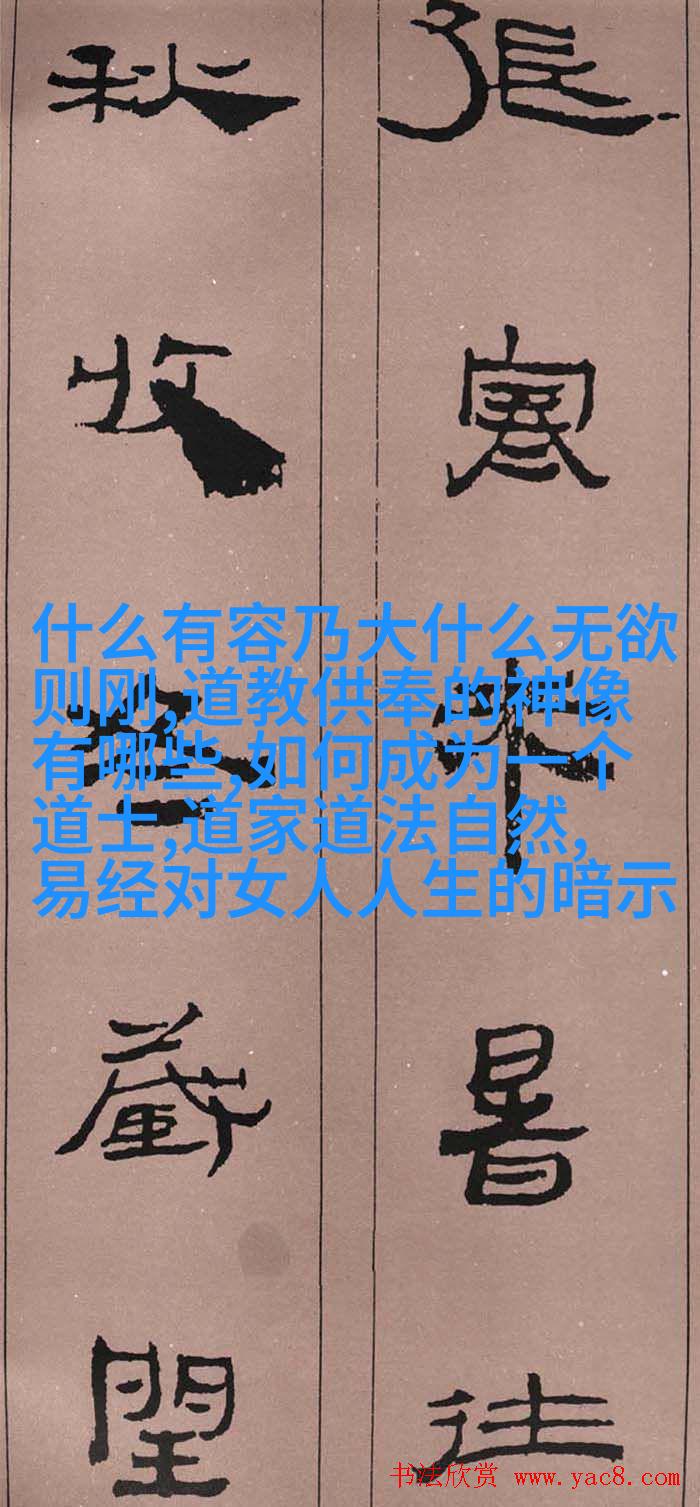 張寒來暑往
秋收冬藏閏
什么有容乃大什么无欲
则刚,道教供奉的神像
有哪些,如何成为一个
道士,道家道法自然,
易经对女人人生的暗示
书法欣赏 www.yac8.com